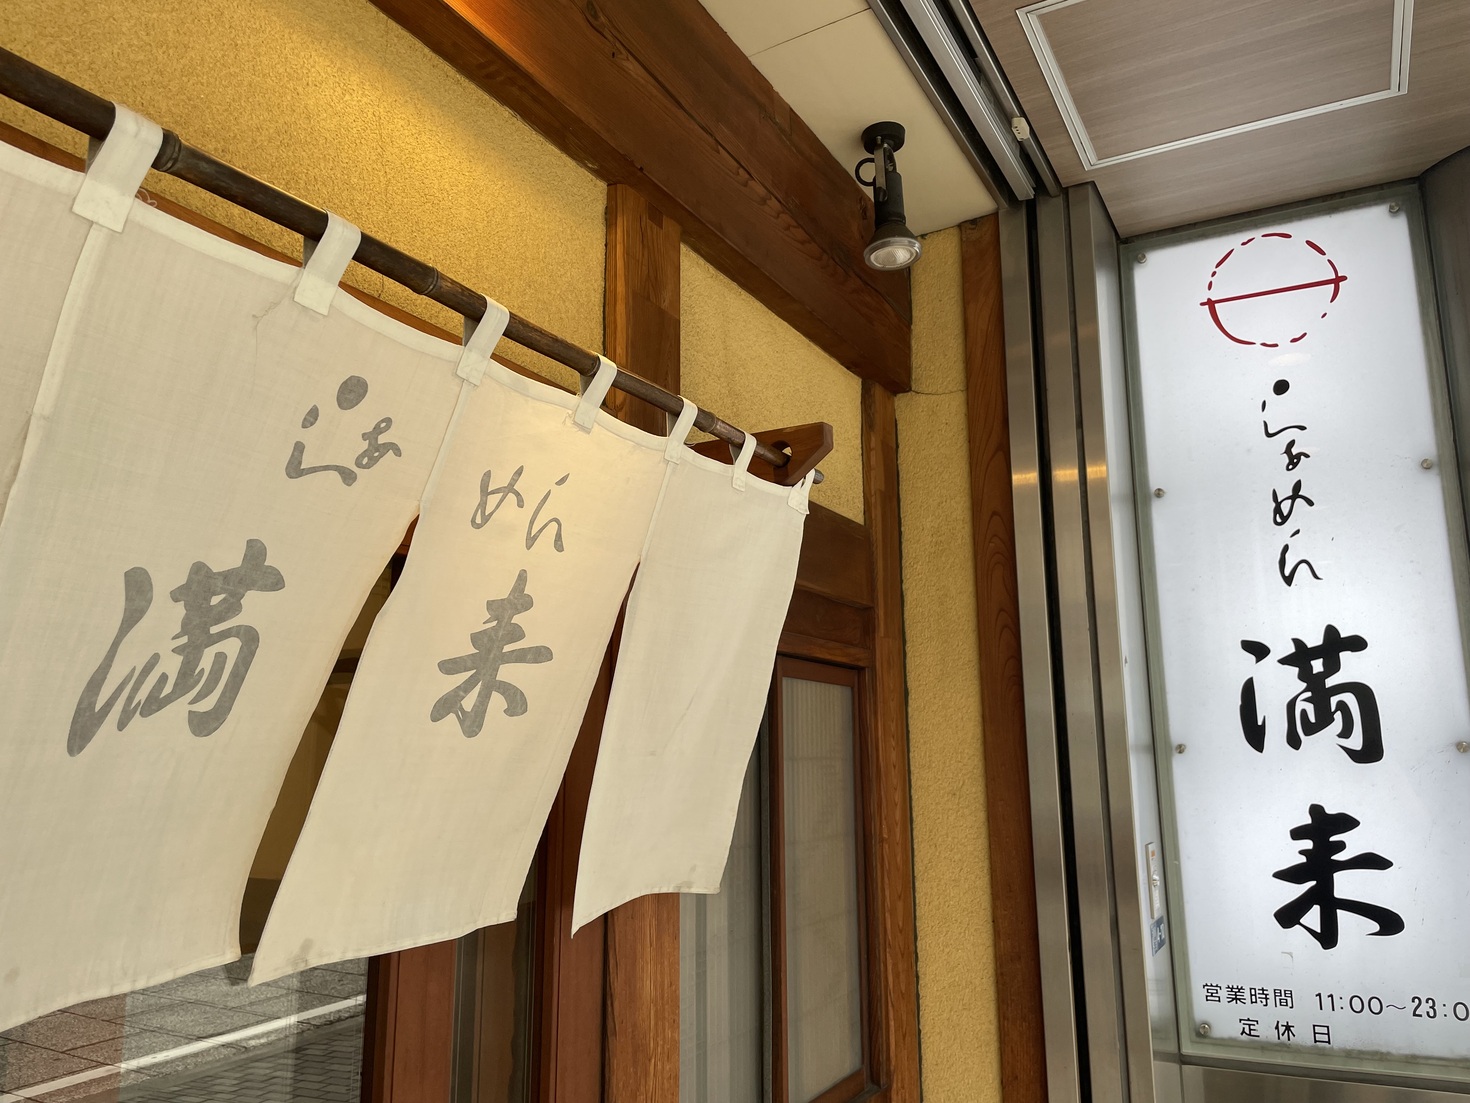 らぁめん
満来
らぁめん
満来
営業時間 11:00〜23:0
定休日